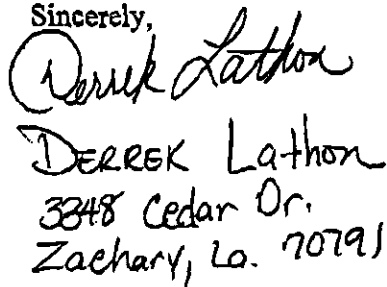 Sincerely,
Derrek Lathon
DERREK Lathon
3348 Cedar Dr.
Zachary, La. 70791